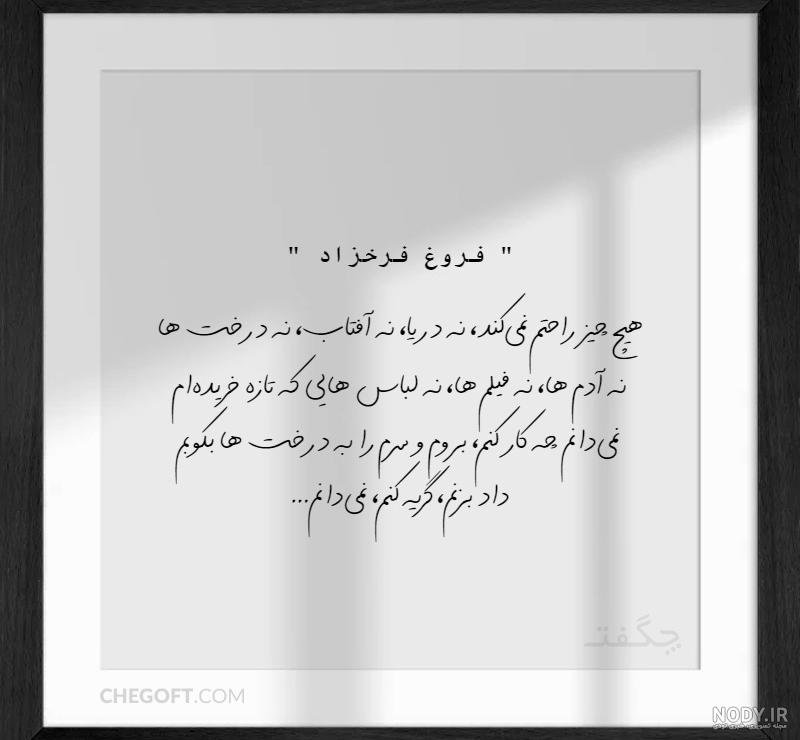 " فروغ فرخزاد "
هیچ چیز راحتم نمی‌کند، نه دریا، نه آفتاب، نه درخت ها
نه آدم ها، نه فیلم ها، نه لباس هایی که تازه خریده‌ام
نمی‌دانم چه کار کنم، بروم و سرم را به درخت ها بکوبم
داد بزنم، گریه کنم، نمی‌دانم...
چگفت
CHEGOFT.COM
NODY.IR
مجله تصویری خبری نودی